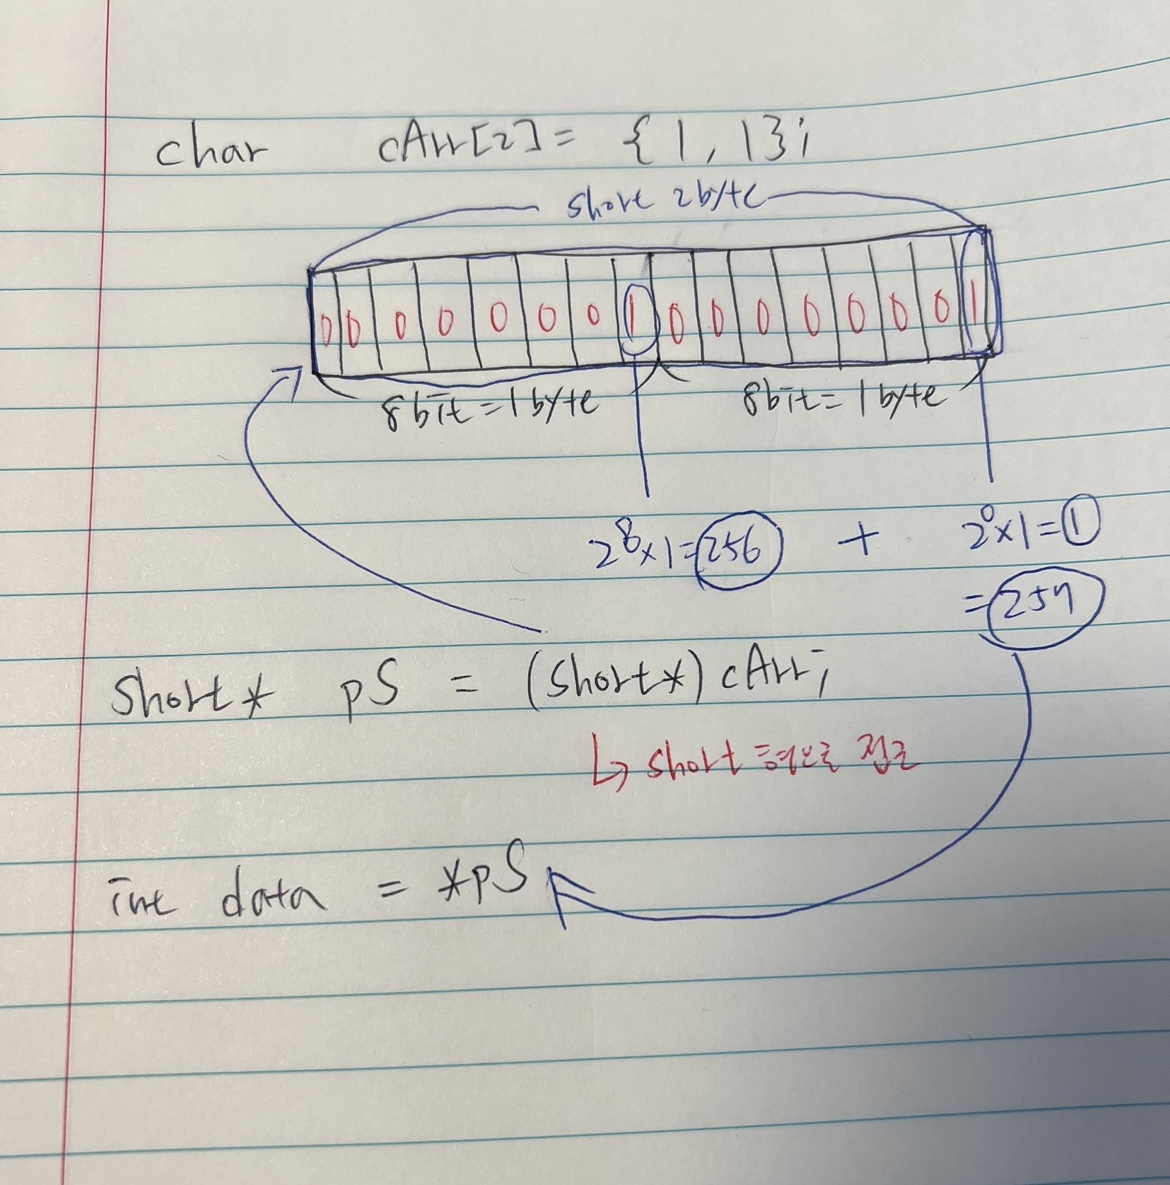 char cArr[2] = {1, 1};
short 2byte
0 0 0 0 0 0 0 1 0 0 0 0 0 0 0 1
8bit = 1byte 8bit = 1byte
2⁸×1=256 + 2⁰×1=1
=257
short* pS = (short*) cArr;
↳ short 형으로 접근
int data = *pS